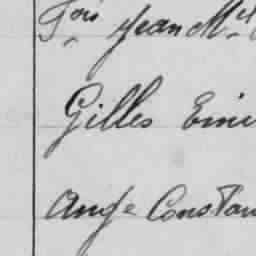 Fois Jean M
Gilles Emi
Ange Constan